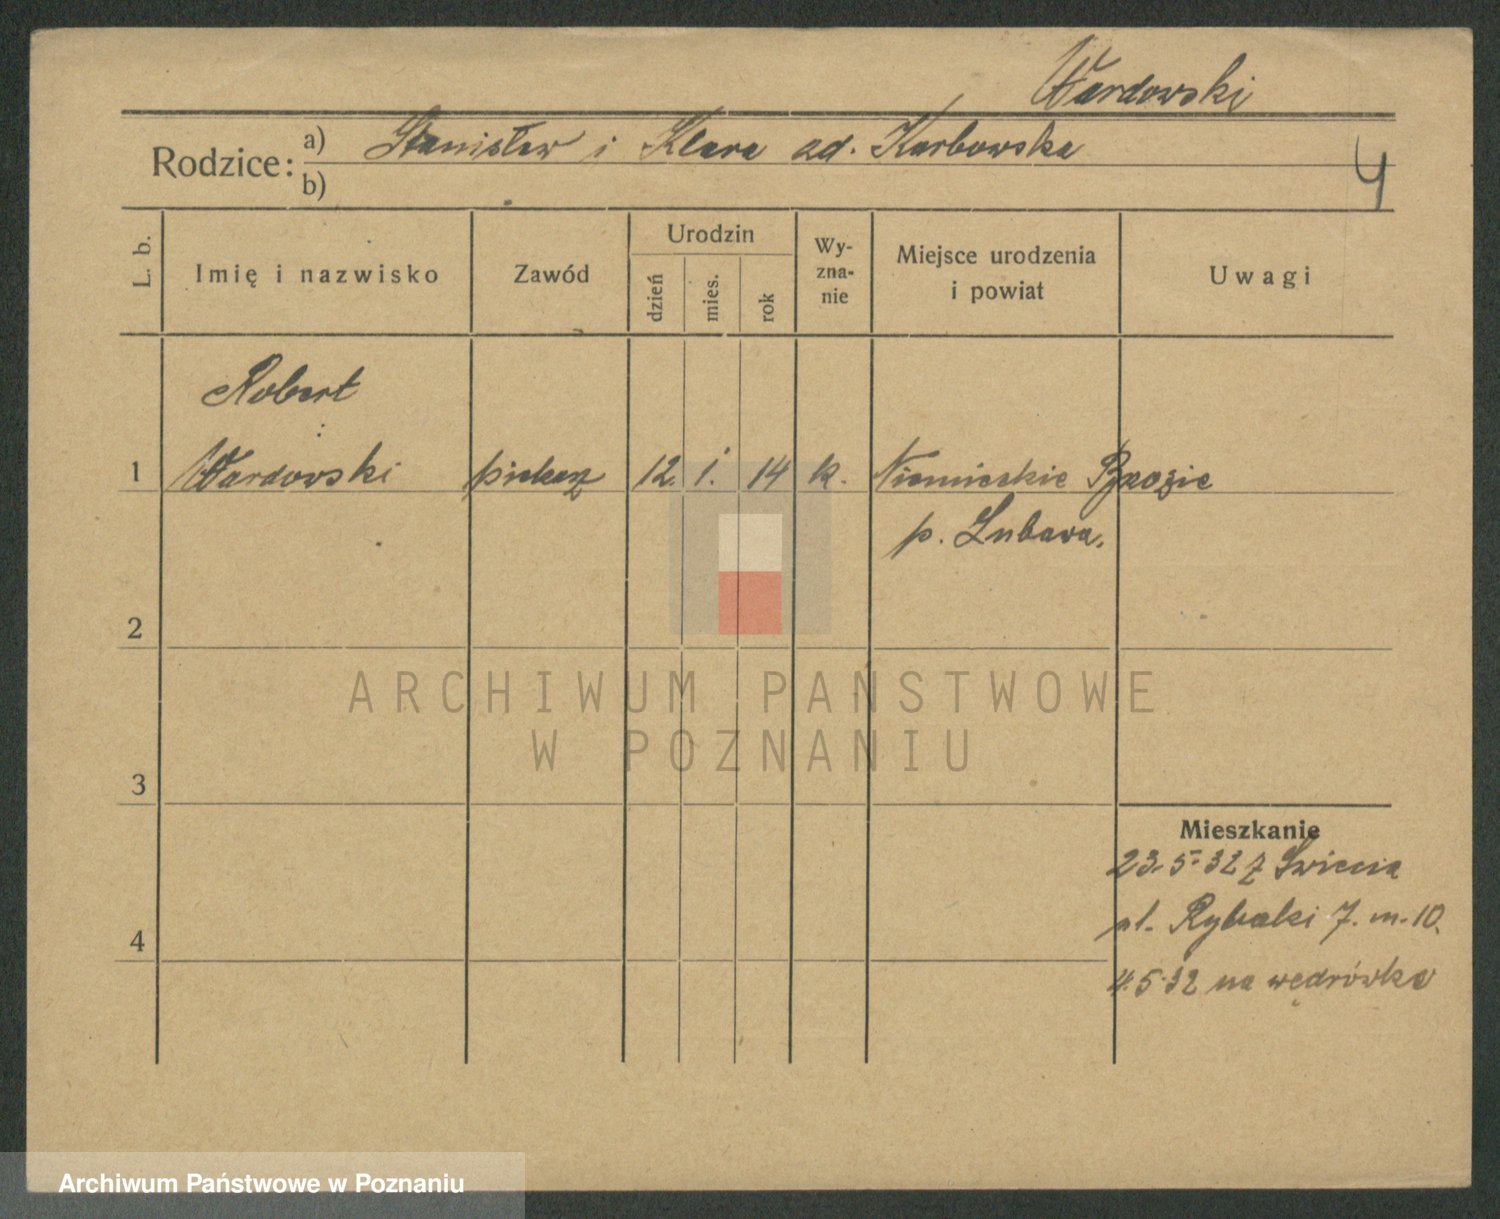 Wardowski
Rodzice:
a) Stanisław i Klara zd. Karbowska
b)
4
L. b.
Imię i nazwisko
Zawód
Urodzin
dzień
mies.
rok
Wy-
zna-
nie
Miejsce urodzenia
i powiat
Uwagi
Robert
1 Wardowski piekarz 12. 1. 14 k. Niemieckie Brzozie
p. Lubawa.
2
3
4
Mieszkanie
23.5.32 z Świecia
ul. Rybaki 7. m. 10.
4.5.32 na wędrówkę
ARCHIWUM PAŃSTWOWE
W POZNANIU
Archiwum Państwowe w Poznaniu